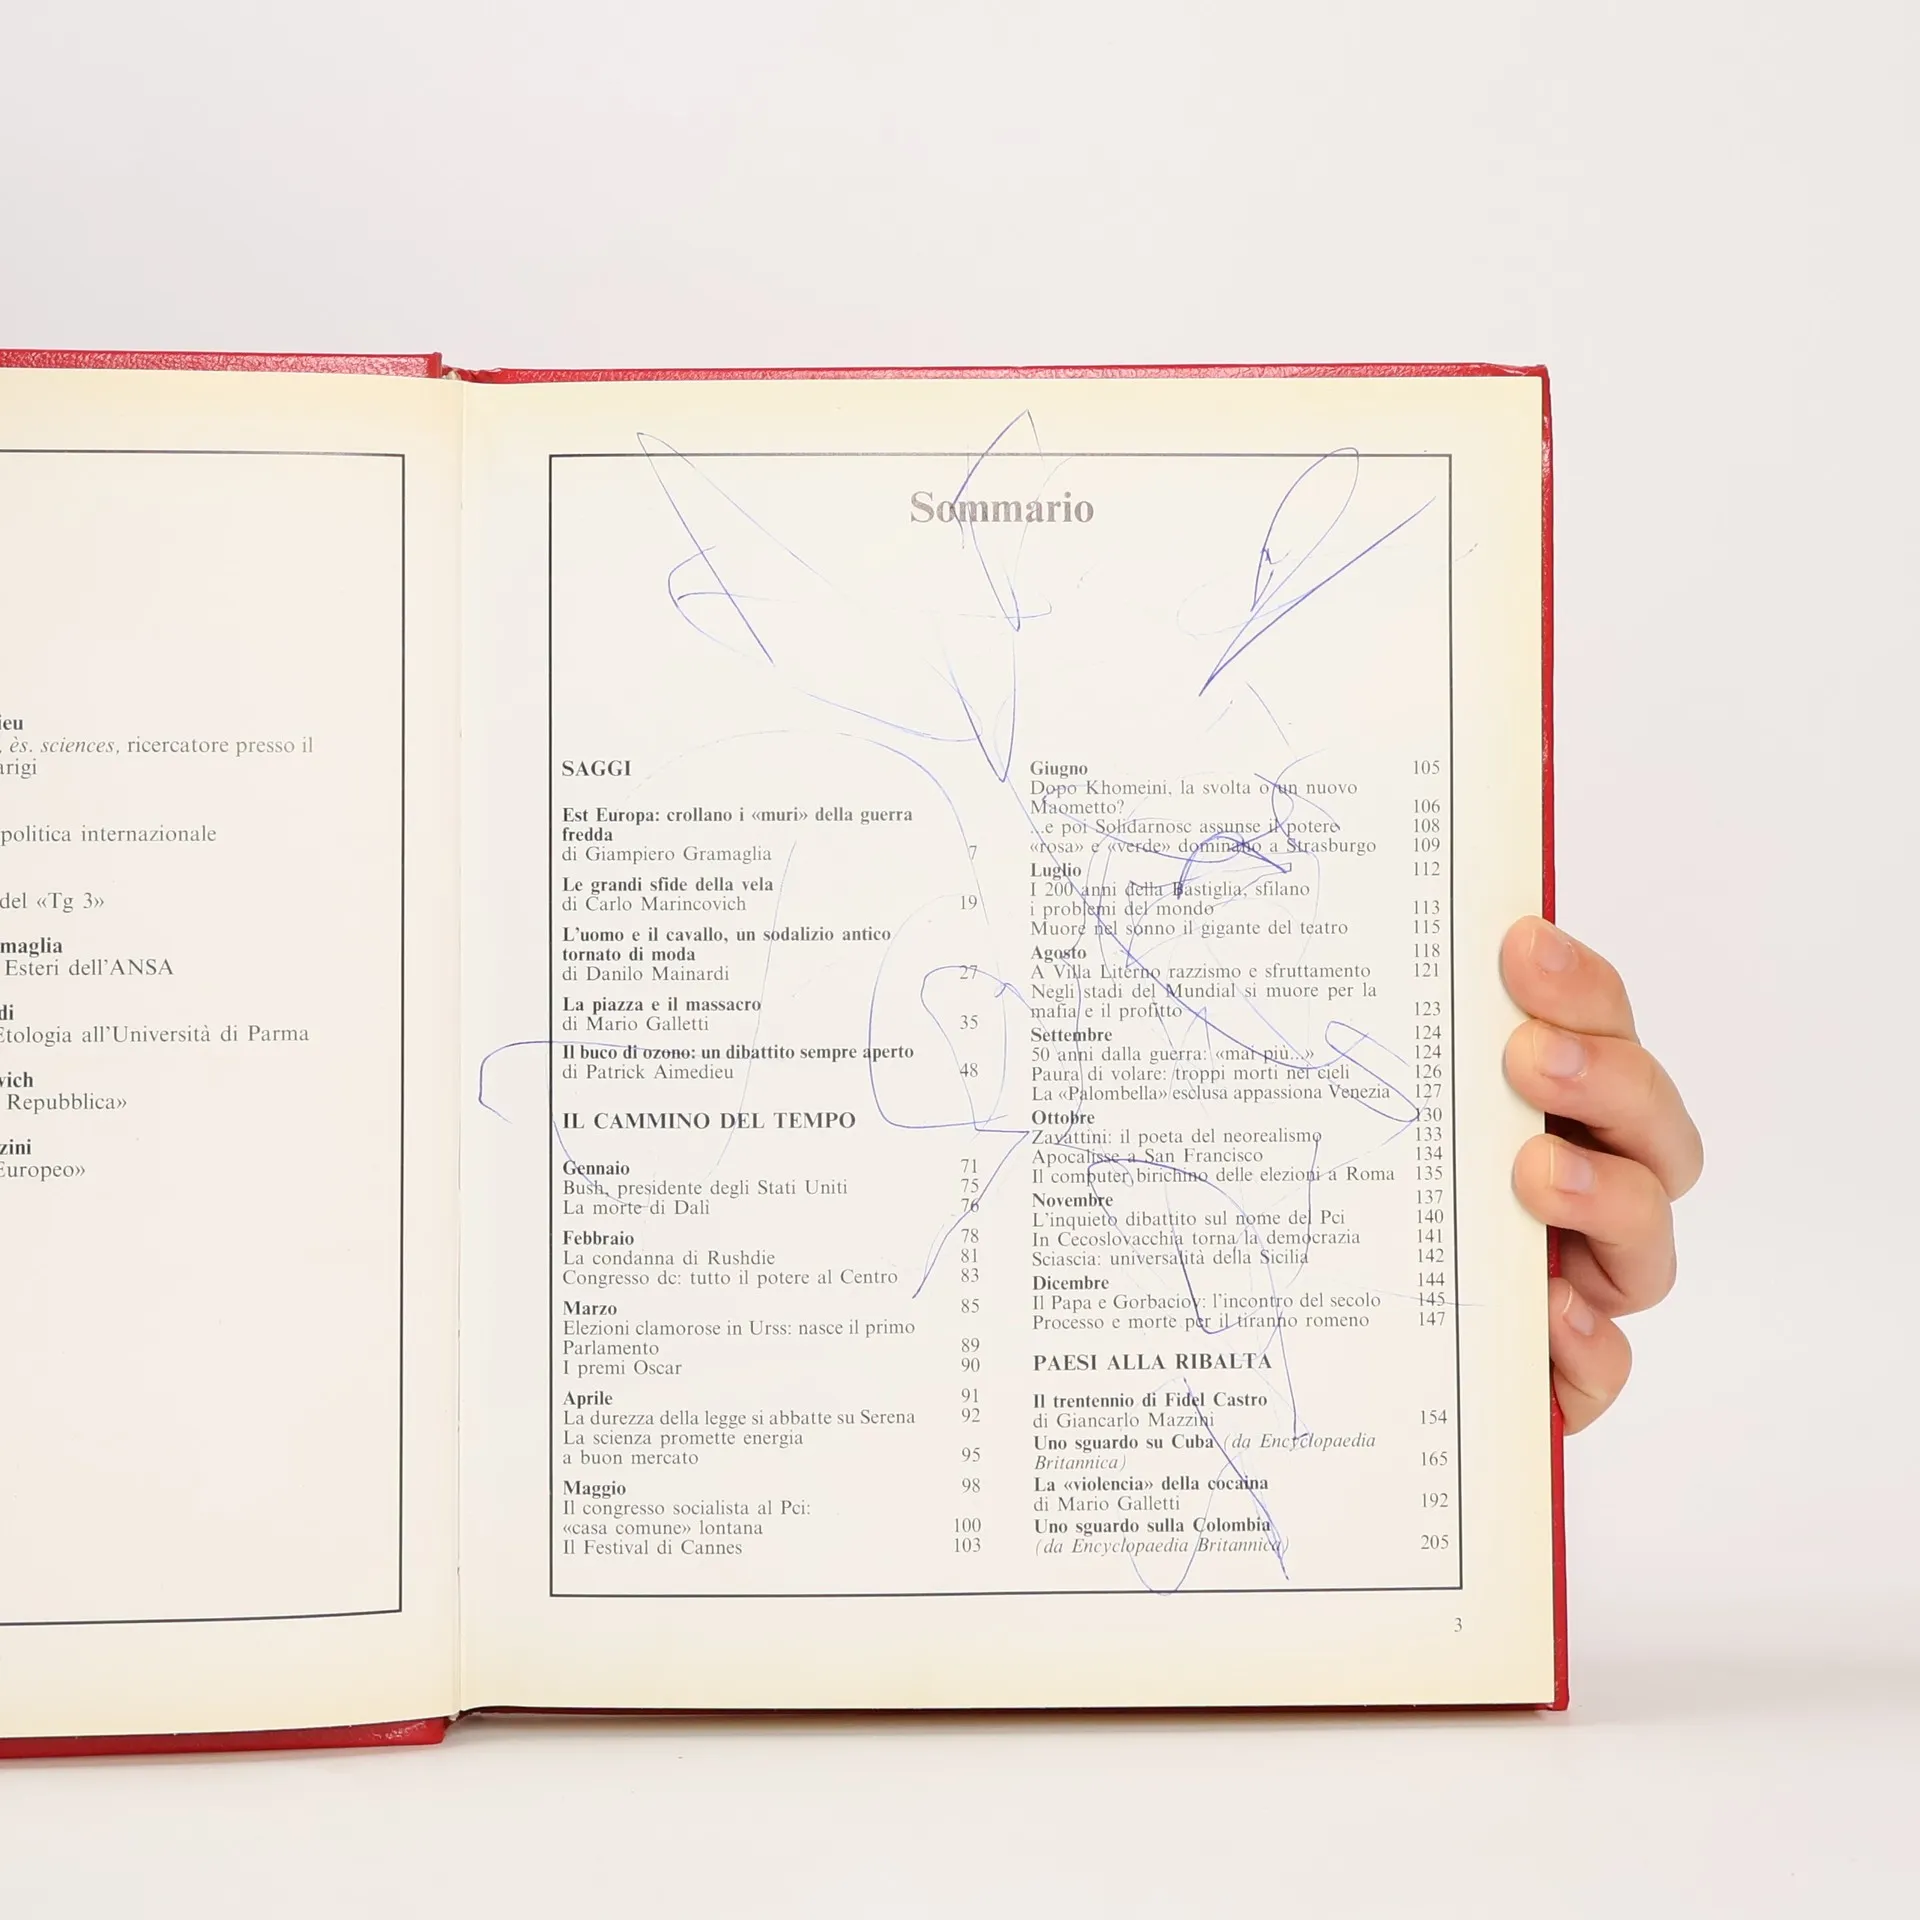 ieu
, ès. sciences, ricercatore presso il
arigi
politica internazionale
del «Tg 3»
maglia
Esteri dell'ANSA
di
Etologia all'Università di Parma
vich
Repubblica»
zini
Europeo»
Sommario
SAGGI
Est Europa: crollano i «muri» della guerra
fredda
di Giampiero Gramaglia 7
Le grandi sfide della vela
di Carlo Marincovich 19
L'uomo e il cavallo, un sodalizio antico
tornato di moda
di Danilo Mainardi 27
La piazza e il massacro
di Mario Galletti 35
Il buco di ozono: un dibattito sempre aperto
di Patrick Aimedieu 48
IL CAMMINO DEL TEMPO
Gennaio 71
Bush, presidente degli Stati Uniti 75
La morte di Dalì 76
Febbraio 78
La condanna di Rushdie 81
Congresso dc: tutto il potere al Centro 83
Marzo 85
Elezioni clamorose in Urss: nasce il primo
Parlamento 89
I premi Oscar 90
Aprile 91
La durezza della legge si abbatte su Serena 92
La scienza promette energia
a buon mercato 95
Maggio 98
Il congresso socialista al Pci:
«casa comune» lontana 100
Il Festival di Cannes 103
Giugno 105
Dopo Khomeini, la svolta o un nuovo
Maometto? 106
...e poi Solidarnosc assunse il potere 108
«rosa» e «verde» dominano a Strasburgo 109
Luglio 112
I 200 anni della Bastiglia, sfilano
i problemi del mondo 113
Muore nel sonno il gigante del teatro 115
Agosto 118
A Villa Literno razzismo e sfruttamento 121
Negli stadi del Mundial si muore per la
mafia e il profitto 123
Settembre 124
50 anni dalla guerra: «mai più...» 124
Paura di volare: troppi morti nei cieli 126
La «Palombella» esclusa appassiona Venezia 127
Ottobre 130
Zavattini: il poeta del neorealismo 133
Apocalisse a San Francisco 134
Il computer birichino delle elezioni a Roma 135
Novembre 137
L'inquieto dibattito sul nome del Pci 140
In Cecoslovacchia torna la democrazia 141
Sciascia: universalità della Sicilia 142
Dicembre 144
Il Papa e Gorbaciov: l'incontro del secolo 145
Processo e morte per il tiranno romeno 147
PAESI ALLA RIBALTA
Il trentennio di Fidel Castro
di Giancarlo Mazzini 154
Uno sguardo su Cuba (da Encyclopaedia
Britannica) 165
La «violencia» della cocaina
di Mario Galletti 192
Uno sguardo sulla Colombia
(da Encyclopaedia Britannica) 205
3